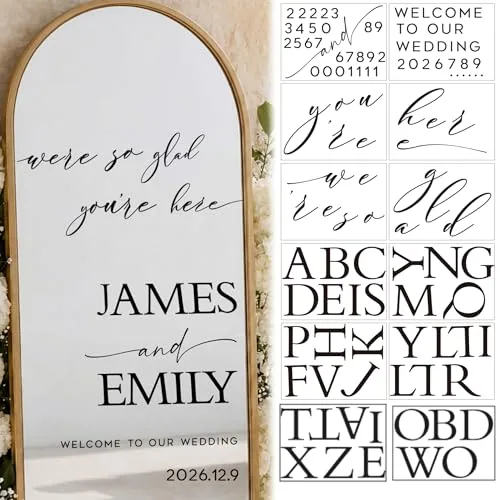 we're so glad
you're here
JAMES
and
EMILY
WELCOME TO OUR WEDDING
2026.12.9
22223
3450
89
2567
and
67892
0001111
WELCOME
TO OUR
WEDDING
2026789
......
you
're
here
we
're so
glad
ABC
DEIS
YNG
MQ
PHK
FVJ
YLTI
LTR
TTAI
XZE
OBD
WO